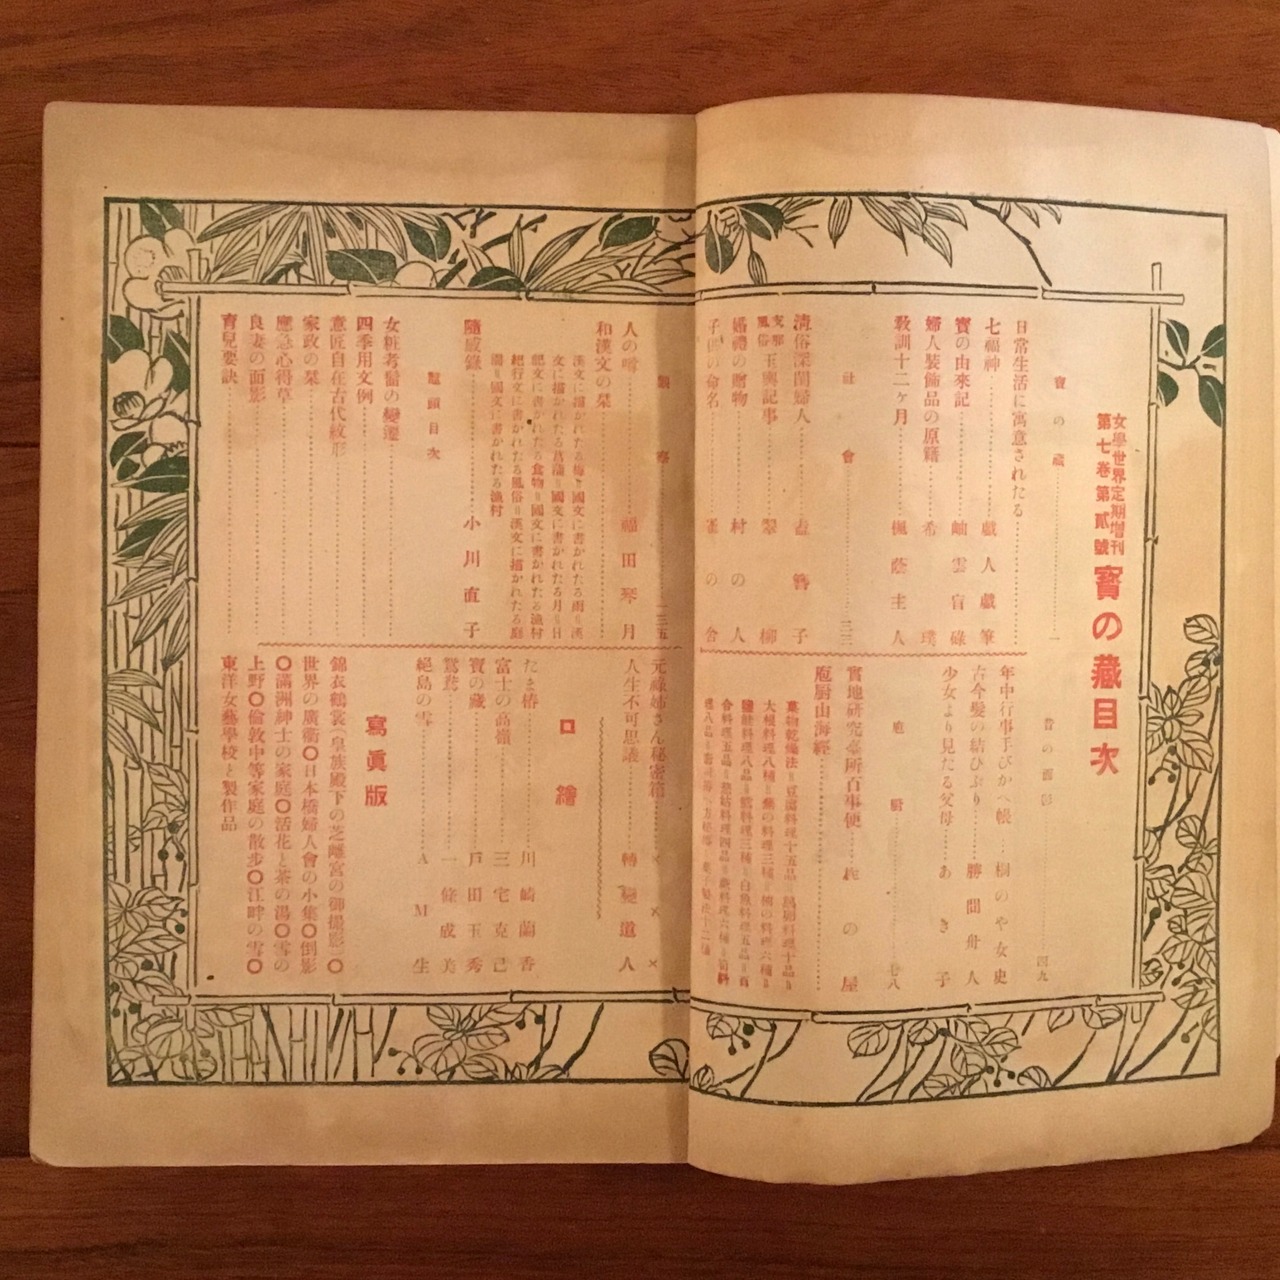 女學世界定期增刊
第七卷第貳號
寶の藏目次
寶の藏……一
日常生活に寓意されたる……
七福神……戯人戯筆
寶の由來記……岫雲盲碌
婦人裝飾品の原籍……希璞
教訓十二ヶ月……佩蔭主人
社會……三三
清俗深閨婦人……簪子
支那風俗玉輿記事……翠柳
婚禮の贈物……村の人
子供の命名……雀の舍
昔の面影……四九
年中行事手びかへ帳……桐のや女史
古今髮の結ひぶり……勝間舟人
少女より見たる父母……あき子
庖厨……七八
實地研究臺所百事便……の屋
庖厨山海經……
菓物乾燥法＝豆腐料理十五品＝
大根料理八種＝
料理八品＝料理三種＝白魚料理五品＝
料理五品＝料理四品＝料理六種＝
一三五
人の噂……福田琴月
和漢文の栞……
漢文に描かれたる梅＝國文に書かれたる雨＝漢
文に描かれたる菖蒲＝國文に書かれたる月＝日
記文に書かれたる食物＝國文に書かれたる漁村
紀行文に書かれたる風俗＝漢文に描かれたる庭
園＝國文に書かれたる漁村
隨感錄……小川直子
鼇頭目次
女粧考豎の變遷……
四季用文例……
意匠自在古代紋形……
家政の栞……
應急心得草……
良妻の面影……
育兒要訣……
元祿姉さん秘密箱……×××
人生不可思議……轉變道人
口繪
たま椿……川崎蘭香
富士の高嶺……三宅克己
寶の藏……戸田玉秀
鴛鴦……一條成美
絕島の雪……AM生
寫眞版
錦衣鶴裳（皇族殿下の芝離宮の御撮影）〇
世界の廣衢〇日本橋婦人會の小集〇倒影
〇滿洲紳士の家庭〇活花と茶の湯〇雪の
上野〇倫敦中等家庭の散步〇江畔の雪〇
東洋女藝學校と製作品